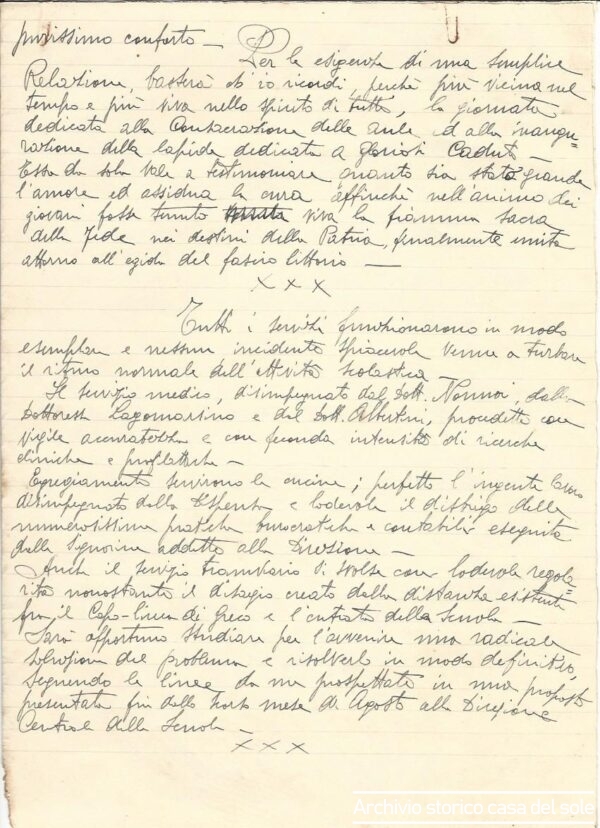 purissimo conforto —
Per le esigenze di una semplice
Relazione, basterà ch'io ricordi, perchè più vicina nel
tempo e più viva nello spirito di tutti, la giornata
dedicata alla Consacrazione delle aule ed alla inaugu=
razione della lapide dedicata a gloriosi Caduti —
Essa da sola vale a testimoniare quanto sia stata grande
l'amore ed assidua la cura affinchè nell'animo dei
giovani fosse tenuta viva la fiamma sacra
della Fede nei destini della Patria, finalmente unita
attorno all'egida del fascio littorio —
x x x
Tutti i servizi funzionarono in modo
esemplare e nessun incidente spiacevole venne a turbare
il ritmo normale dell'attività scolastica —
Il servizio medico, disimpegnato dal Dott. dalla
Dottoressa Lagomarsino e dal Dott. Albertini, procedette con
vigile accuratezza e con feconda intensità di ricerche
cliniche e profilattiche —
Egregiamente servirono le cucine; perfetto l'ingente lavoro
disimpegnato dalla Dispensa e lodevole il disbrigo delle
numerosissime pratiche burocratiche e contabili eseguite
dalle Signorine addette alla Direzione —
Anche il servizio tramviario si svolse con lodevole regola=
rità nonostante il disagio creato dalla distanza esistente
fra il Capo-linea di Greco e l'entrata della Scuola —
Sarà opportuno studiare per l'avvenire una radicale
soluzione del problema e risolverlo in modo definitivo,
seguendo le linee da me prospettate in una proposta
presentata fin dallo scorso mese di Agosto alla Direzione
Centrale della Scuola —
x x x
Archivio storico casa del sole